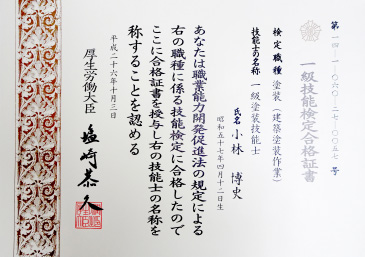 第一四-一-〇六〇-一七-〇〇五七号
一級技能検定合格証書
検定職種 塗装（建築塗装作業）
技能士の名称 一級塗装技能士
氏名 小林 博史
昭和五十七年四月十二日生
あなたは職業能力開発促進法の規定による
右の職種に係る技能検定に合格したので
ここに合格証書を授与し右の技能士の名称を
称することを認める
平成二十六年十月三日
厚生労働大臣
塩崎恭久